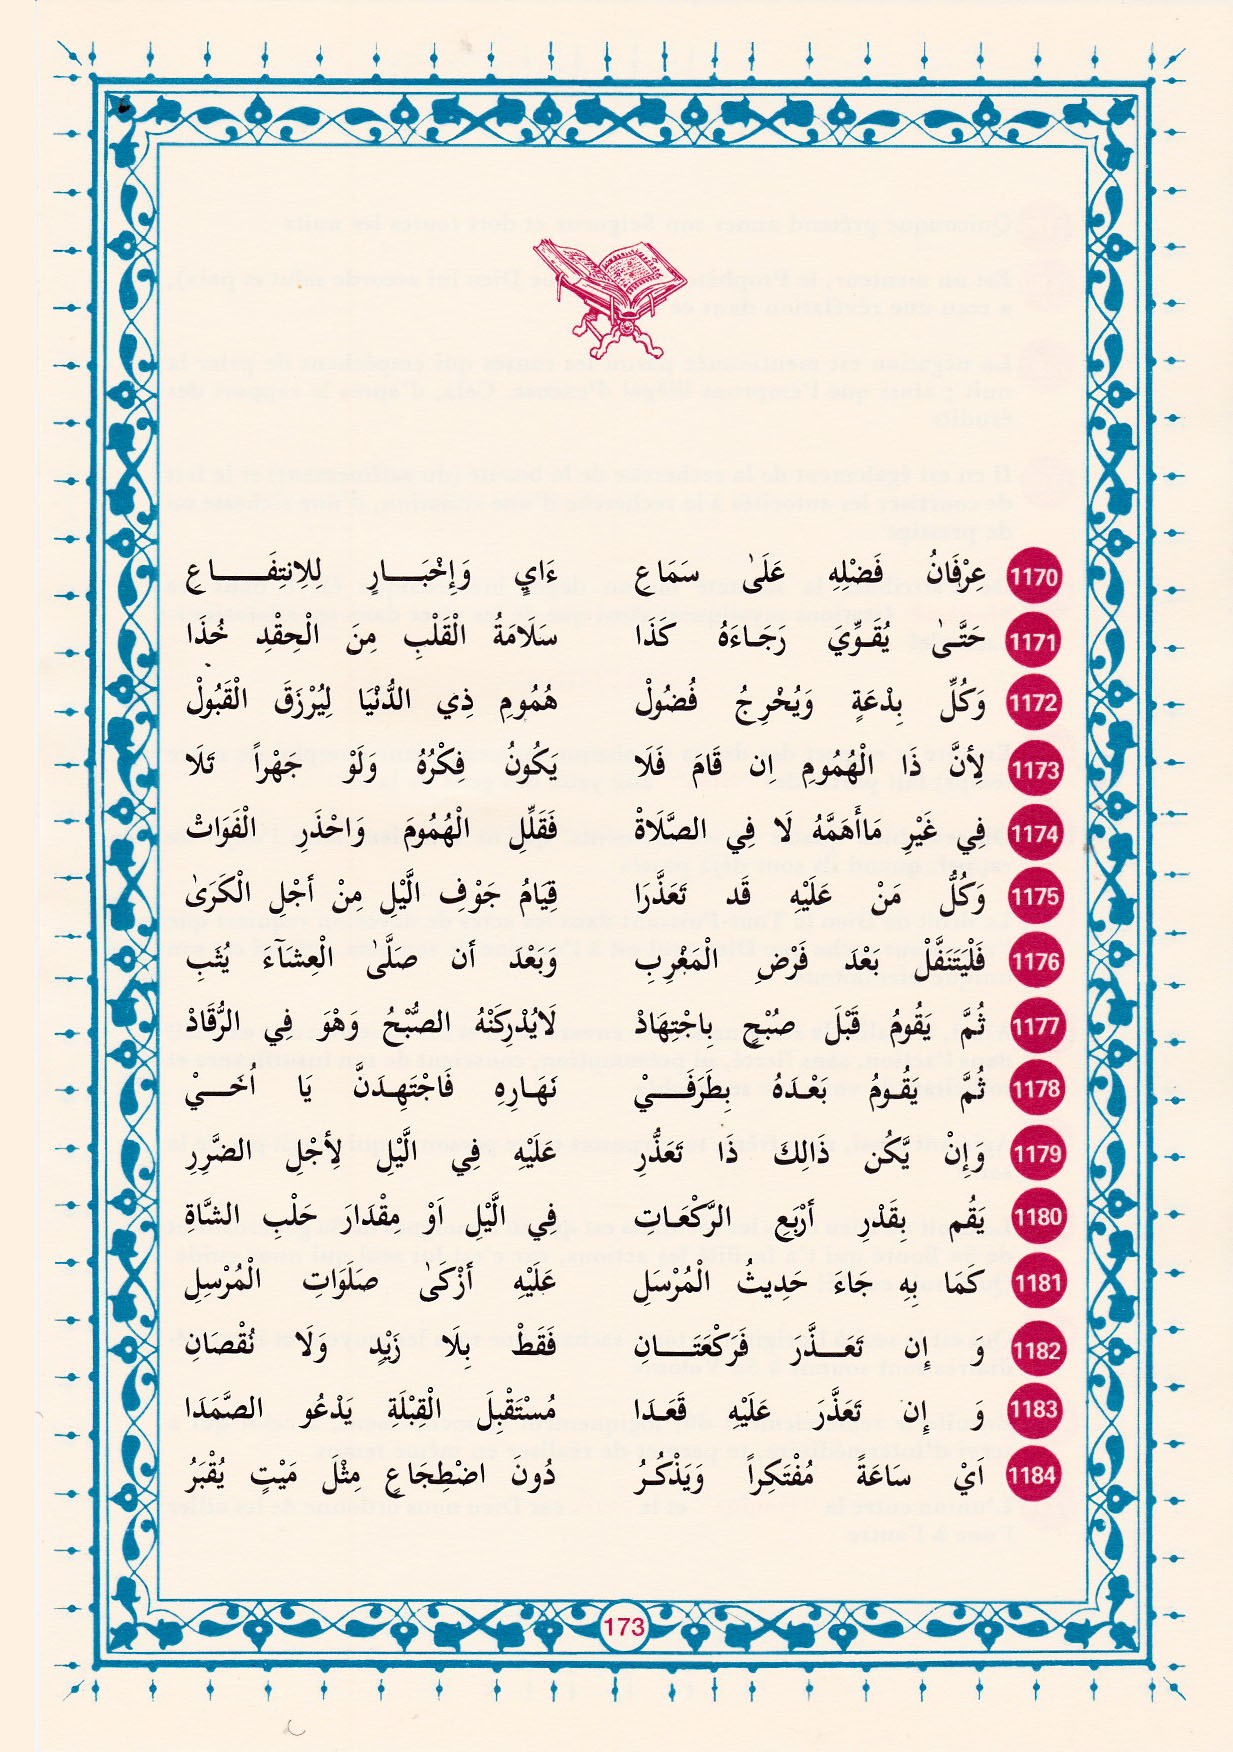 1170 عِرْفَانُ فَضْلِهِ عَلَىٰ سَمَاعِ ءَايٍ وَإِخْبَارٍ لِلِانتِفَاعِ
1171 حَتَّىٰ يُقَوِّيَ رَجَاءَهُ كَذَا سَلَامَةُ الْقَلْبِ مِنَ الْحِقْدِ خُذَا
1172 وَكُلِّ بِدْعَةٍ وَيُخْرِجُ فُضُولْ هُمُومِ ذِي الدُّنْيَا لِيُرْزَقَ الْقَبُولْ
1173 لِأَنَّ ذَا الْهُمُومِ اِن قَامَ فَلَا يَكُونُ فِكْرُهُ وَلَوْ جَهْراً تَلَا
1174 فِي غَيْرِ مَاأَهَمَّهُ لَا فِي الصَّلَاةْ فَقَلِّلِ الْهُمُومَ وَاحْذَرِ الْفَوَاتْ
1175 وَكُلُّ مَنْ عَلَيْهِ قَد تَعَذَّرَا قِيَامُ جَوْفِ الَّيْلِ مِنْ أَجْلِ الْكَرَىٰ
1176 فَلْيَتَنَفَّلْ بَعْدَ فَرْضِ الْمَغْرِبِ وَبَعْدَ أَن صَلَّىٰ الْعِشَآءَ يُثَبِ
1177 ثُمَّ يَقُومُ قَبْلَ صُبْحٍ بِاجْتِهَادْ لَايُدْرِكَنْهُ الصُّبْحُ وَهْوَ فِي الرُّقَادْ
1178 ثُمَّ يَقُومُ بَعْدَهُ بِطَرَفَيْ نَهَارِهِ فَاجْتَهِدَنَّ يَا اُخَيْ
1179 وَإِنْ يَّكُن ذَالِكَ ذَا تَعَذُّرِ عَلَيْهِ فِي الَّيْلِ لِأَجْلِ الضَّرَرِ
1180 يَقُم بِقَدْرِ أَرْبَعِ الرَّكْعَاتِ فِي الَّيْلِ اَوْ مِقْدَارَ حَلْبِ الشَّاةِ
1181 كَمَا بِهِ جَاءَ حَدِيثُ الْمُرْسَلِ عَلَيْهِ أَزْكَىٰ صَلَوَاتِ الْمُرْسِلِ
1182 وَ إِن تَعَذَّر فَرَكْعَتَانِ فَقَطْ بِلَا زَيْدٍ وَلَا نُقْصَانِ
1183 وَ إِن تَعَذَّرَ عَلَيْهِ قَعَدَا مُسْتَقْبِلَ الْقِبْلَةِ يَدْعُو الصَّمَدَا
1184 اَيْ سَاعَةً مُفْتَكِراً وَيَذْكُرُ دُونَ اضْطِجَاعٍ مِثْلَ مَيْتٍ يُقْبَرُ
173